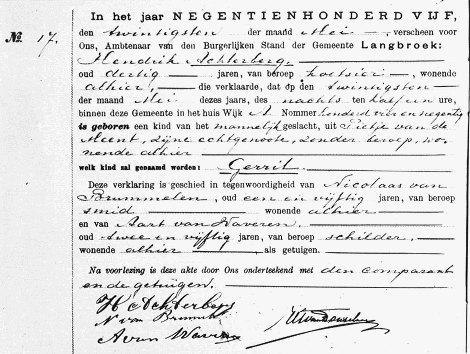 In het jaar NEGENTIENHONDERD VIJF,
No. 17.
den twintigsten der maand Mei, verscheen voor
Ons, Ambtenaar van den Burgerlijken Stand der Gemeente Langbroek:
Hendrik Achterberg,
oud dertig jaren, van beroep koetsier, wonende
alhier, die verklaarde, dat op den twintigsten
der maand Mei dezes jaars, des nachts ten half een ure,
binnen deze Gemeente in het huis Wijk A. Nommer honderd vier en zeventig
is geboren een kind van het mannelijk geslacht, uit Pietje van de
Meent, zijne echtgenoote, zonder beroep, wo-
nende alhier
welk kind zal genaamd worden: Gerrit.
Deze verklaring is geschied in tegenwoordigheid van Nicolaas van
Brummelen, oud een en vijftig jaren, van beroep
smid wonende alhier
en van Aart van Waveren,
oud twee en vijftig jaren, van beroep schilder,
wonende alhier als getuigen.
Na voorlezing is deze akte door Ons onderteekend met den comparant
en de getuigen.
H Achterberg
N van
A van Waveren